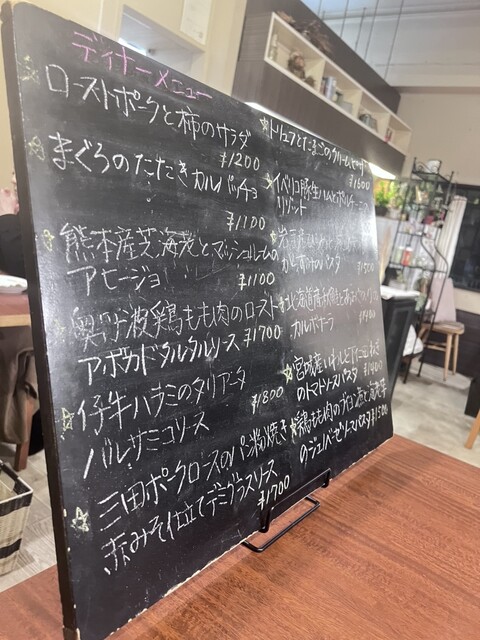 ディナーメニュー
ローストポークと柿のサラダ
¥1200
まぐろのたたきカルパッチョ
¥1100
熊本産芝海老とマッシュルームの
アヒージョ ¥1100
奥丹波鶏もも肉のロースト
アボカドタルタルソース ¥1700
仔牛ハラミのタリアータ
バルサミコソース ¥1800
三田ポークロースのパン粉焼き
赤みそ仕立てデミグラスソース
¥1700
トリュフとたまごのクリームピザ
¥1600
イベリコ豚生ハムとポルチーニの
リゾット
からすみのパスタ
北海道産
カルボナーラ
宮城産
のトマトソースパスタ ¥1400
鶏もも肉
のジェノベーゼパスタ ¥1500